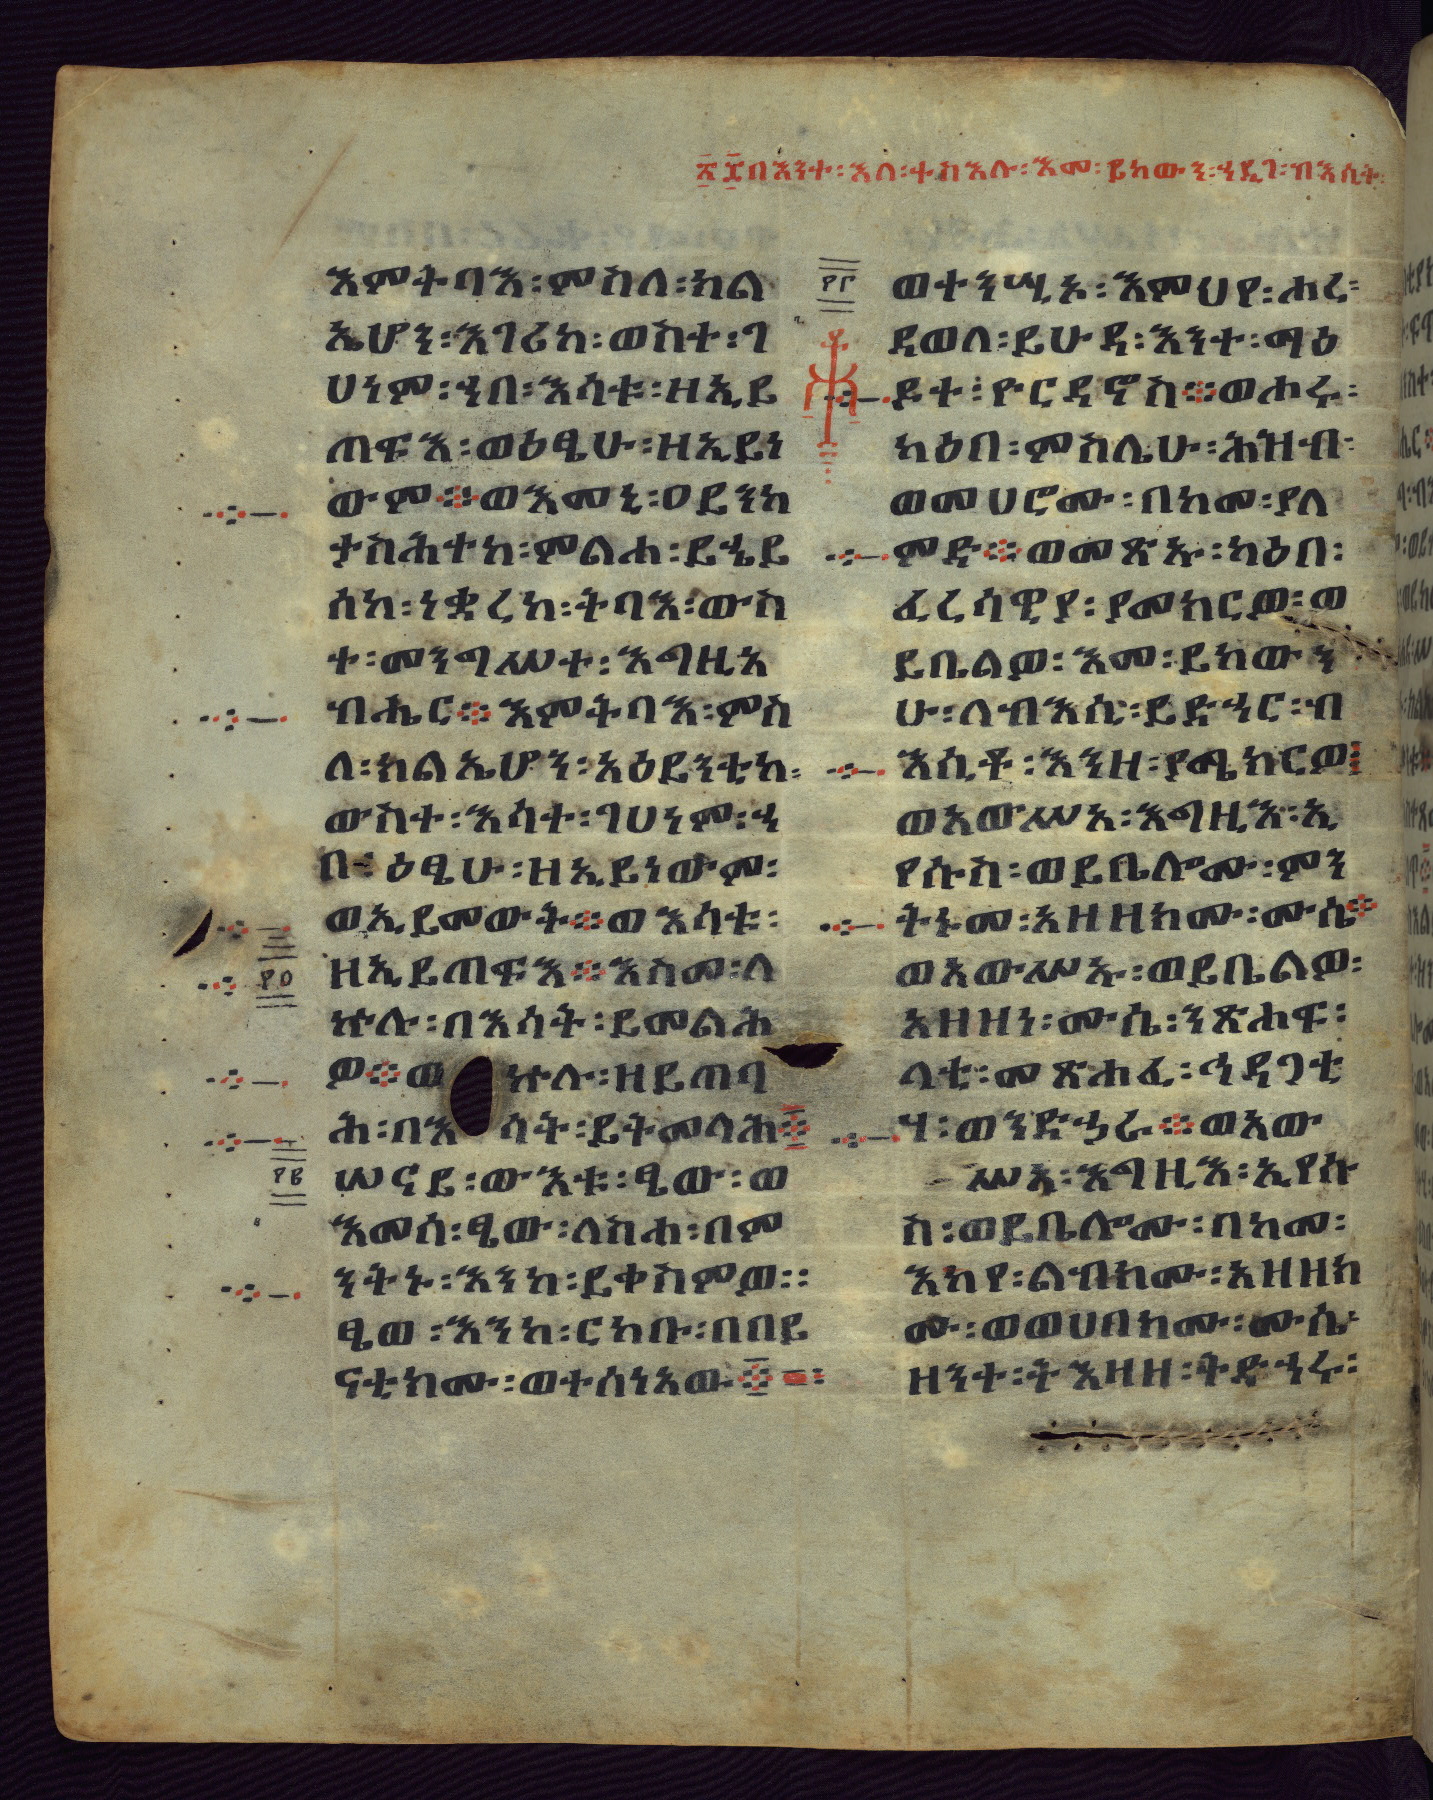 ፳፭በእንተ፡እለ፡ተስእሉ፡እመ፡ይከውን፡ኅዲገ፡ብእሲት፡
እምትባእ፡ምስለ፡ክል
ኤሆን፡እገሪከ፡ወስተ፡ገ
ሀነም፡ኀበ፡እሳቱ፡ዘኢይ
ጠፍእ፡ወዕፄሁ፡ዘኢይነ
ውም፨ወእመኒ፡ዐይንከ
ታስሕተከ፡ምልሐ፡ይኄይ
ሰከ፡ነቋረከ፡ትባእ፡ውስ
ተ፡መንግሥተ፡እግዚአ
ብሔር፨እምትባእ፡ምስ
ለ፡ክልኤሆን፡አዕይንቲከ፡
ውስተ፡እሳተ፡ገሀነም፡ኀ
በ፡ዕፄሁ፡ዘኢይነውም፡
ወኢይመውት፨ወእሳቱ፡
፺፬
ዘኢይጠፍእ፨እስመ፡ለ
ኵሉ፡በእሳት፡ይመልሕ
ዎ፨ወኵሉ፡ዘይጠባ
ሕ፡በእሳት፡ይትመላሕ፨
፺፪
ሠናይ፡ውእቱ፡ፄው፡ወ
እመሰ፡ፄው፡ላስሐ፡በም
ንትኑ፡እንከ፡ይቀስምዎ፡፡
ፄወ፡እንከ፡ርከቡ፡በበይ
ናቲክሙ፡ወተሰነአው፨
፺፫
ወተንሢኦ፡እምህየ፡ሐረ፡
ደወለ፡ይሁዳ፡እንተ፡ማዕ
ዶተ፡ዮርዳኖስ፨ወሐሩ፡
ካዕበ፡ምስሌሁ፡ሕዝብ፡
ወመሀሮሙ፡በከመ፡ያለ
ምድ፨ወመጽኡ፡ካዕበ፡
ፈሪሳዊያ፡ያመክርዎ፡ወ
ይቤልዎ፡እመ፡ይከውን
ሁ፡ለብእሲ፡ይድኅር፡ብ
እሲቶ፡እንዘ፡ያሜክርዎ፡
ወአውሥአ፡እግዚእ፡ኢ
የሱስ፡ወይቤሎሙ፡ምን
ትኑመ፡አዘዘክሙ፡ሙሴ፨
ወአውሥኡ፡ወይቤልዎ፡
አዘዘነ፡ሙሴ፡ንጽሐፍ፡
ላቲ፡መጽሐፈ፡ኅዳጋቲ
ሃ፡ወንድኅራ፨ወአው
ሥአ፡እግዚእ፡ኢየሱ
ስ፡ወይቤሎሙ፡በከመ፡
እከየ፡ልብክሙ፡አዘዘክ
ሙ፡ወወሀበክሙ፡ሙሴ፡
ዘንተ፡ትእዛዘ፡ትድኅሩ፡